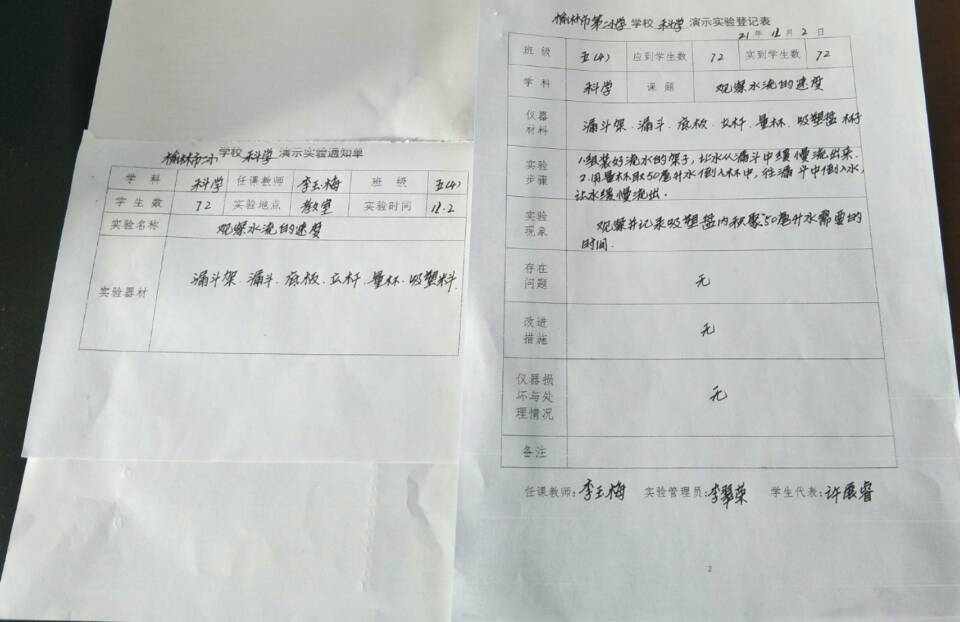 榆林市二小学校科学演示实验通知单
学科 科学 任课教师 李玉梅 班级 五(4)
学生数 72 实验地点 教室 实验时间 12.2
实验名称 观察水流的速度
实验器材 漏斗架、漏斗、底板、立杆、量杯、吸塑料
榆林市第二小学学校科学演示实验登记表
21年12月2日
班级 五(4) 应到学生数 72 实到学生数 72
学科 科学 课题 观察水流的速度
仪器材料 漏斗架、漏斗、底板、立杆、量杯、吸塑盘
实验步骤 1.组装好流水的架子,让水从漏斗中缓慢流出来.
2.用量杯取50毫升水倒入杯中,往漏斗中倒入水,
让水缓慢流出.
实验现象 观察并记录吸塑盘内积聚50毫升水需要的
时间.
存在问题 无
改进措施 无
仪器损坏与处理情况 无
备注
任课教师:李玉梅 实验管理员:李翠荣 学生代表:许展睿
2